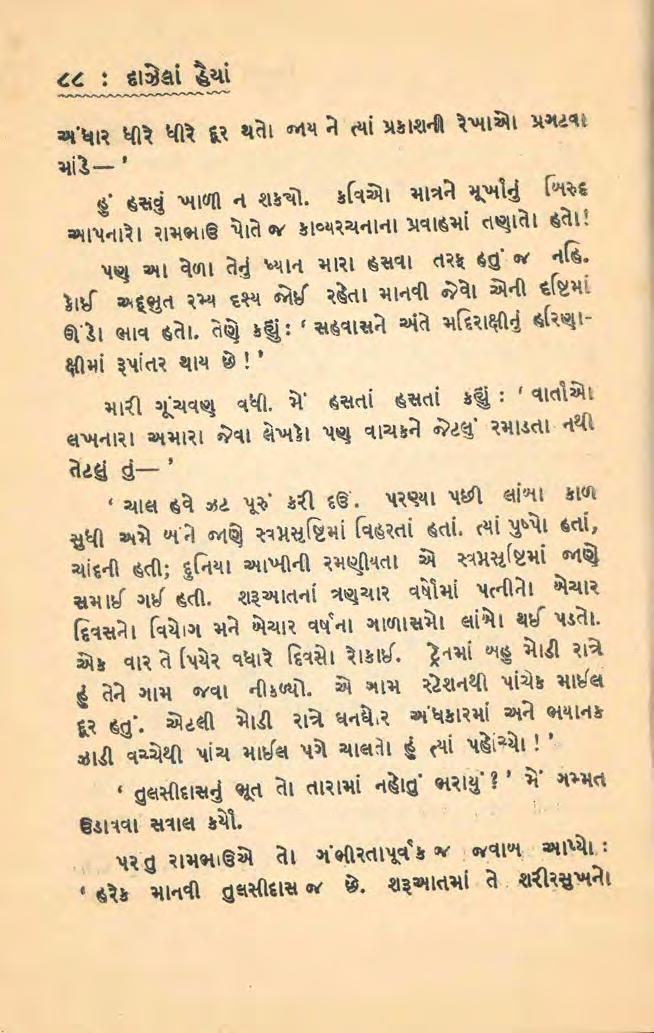 ૮૮ : દાઝેલાં હૈયાં
અંધાર ધીરે ધીરે દૂર થતો જાય ને ત્યાં પ્રકાશની રેખાઓ પ્રગટવા
માંડે— '
હું હસવું ખાળી ન શક્યો. કવિઓ માત્રને મૂર્ખાનું બિરુદ
આપનારો રામભાઉ પોતે જ કાવ્યરચનાના પ્રવાહમાં તણાતો હતો!
પણ આ વેળા તેનું ધ્યાન મારા હસવા તરફ હતું જ નહિ.
કોઈ અદ્‌ભુત રમ્ય દશ્ય જોઈ રહેતા માનવી જેવો એની દૃષ્ટિમાં
ઊંડો ભાવ હતો. તેણે કહ્યું : ‘ સહવાસને અંતે મદિરાક્ષીનું હરિણા-
ક્ષીમાં રૂપાંતર થાય છે ! '
મારી ગૂંચવણ વધી. મેં હસતાં હસતાં કહ્યું : ‘ વાર્તાઓ
લખનારા અમારા જેવા લેખકો પણ વાચકને જેટલું રમાડતા નથી
તેટલું તું— '
‘ ચાલ હવે ઝટ પૂરું કરી દઉં. પરણ્યા પછી લાંબા કાળ
સુધી અમે બંને જાણે સ્વપ્નસૃષ્ટિમાં વિહરતાં હતાં. ત્યાં પુષ્પો હતાં,
ચાંદની હતી; દુનિયા આખીની રમણીયતા એ સ્વપ્નસૃષ્ટિમાં જાણે
સમાઈ ગઈ હતી. શરૂઆતનાં ત્રણચાર વર્ષોમાં પત્નીનો બેચાર
દિવસનો વિયોગ મને બેચાર વર્ષના ગાળાસમો લાંબો થઈ પડતો.
એક વાર તે પિયેર વધારે દિવસો રોકાઈ. ટ્રેનમાં બહુ મોડી રાત્રે
હું તેને ગામ જવા નીકળ્યો. એ ગામ સ્ટેશનથી પાંચેક માઈલ
દૂર હતું. એટલી મોડી રાત્રે ઘનઘોર અંધકારમાં અને ભયાનક
ઝાડી વચ્ચેથી પાંચ માઈલ પગે ચાલતો હું ત્યાં પહોંચ્યો ! '
‘ તુલસીદાસનું ભૂત તો તારામાં નહોતું ભરાયું ? ' મેં ગમ્મત
ઉડાવવા સવાલ કર્યો.
પરંતુ રામભાઉએ તો ગંભીરતાપૂર્વક જ જવાબ આપ્યો :
‘ હરેક માનવી તુલસીદાસ જ છે. શરૂઆતમાં તે શરીરસુખનો